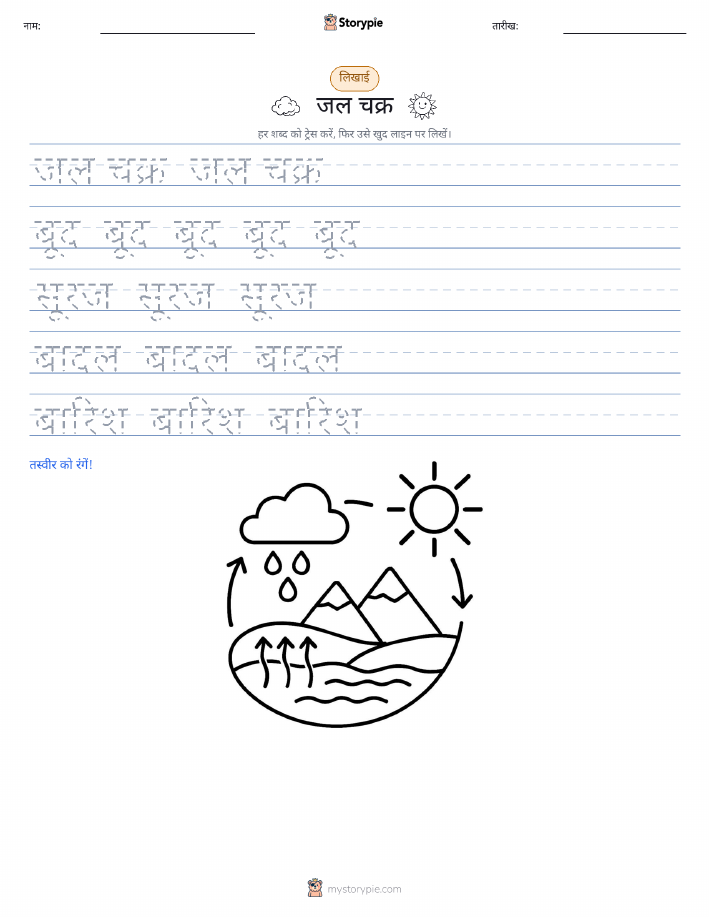 नाम: Storypie तारीख:
लिखाई
जल चक्र
हर शब्द को ट्रेस करें, फिर उसे खुद लाइन पर लिखें।
जल चक्र जल चक्र
बूंद बूंद बूंद बूंद बूंद
सूरज सूरज सूरज
बादल बादल बादल
बारिश बारिश बारिश
तस्वीर को रंगें!
mystorypie.com